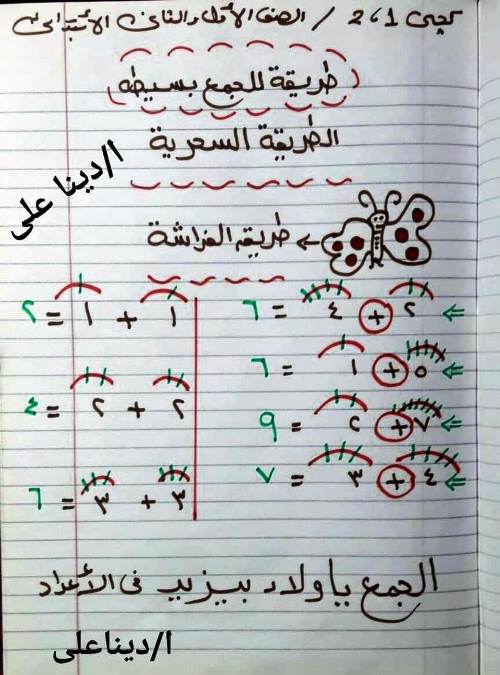 كجى 1، 2 / الصف الأول والثانى الأبتدائى
طريقة للجمع بسيطه
الطريقة السحرية
ا/دينا على
طريقه الفراشة ←
٢ + ٤ = ٦
٥ + ١ = ٦
٧ + ٢ = ٩
٤ + ٣ = ٧
١ + ١ = ٢
٢ + ٢ = ٤
٣ + ٣ = ٦
الجمع يا ولاد بيزيد فى الأعداد
ا/دينا على